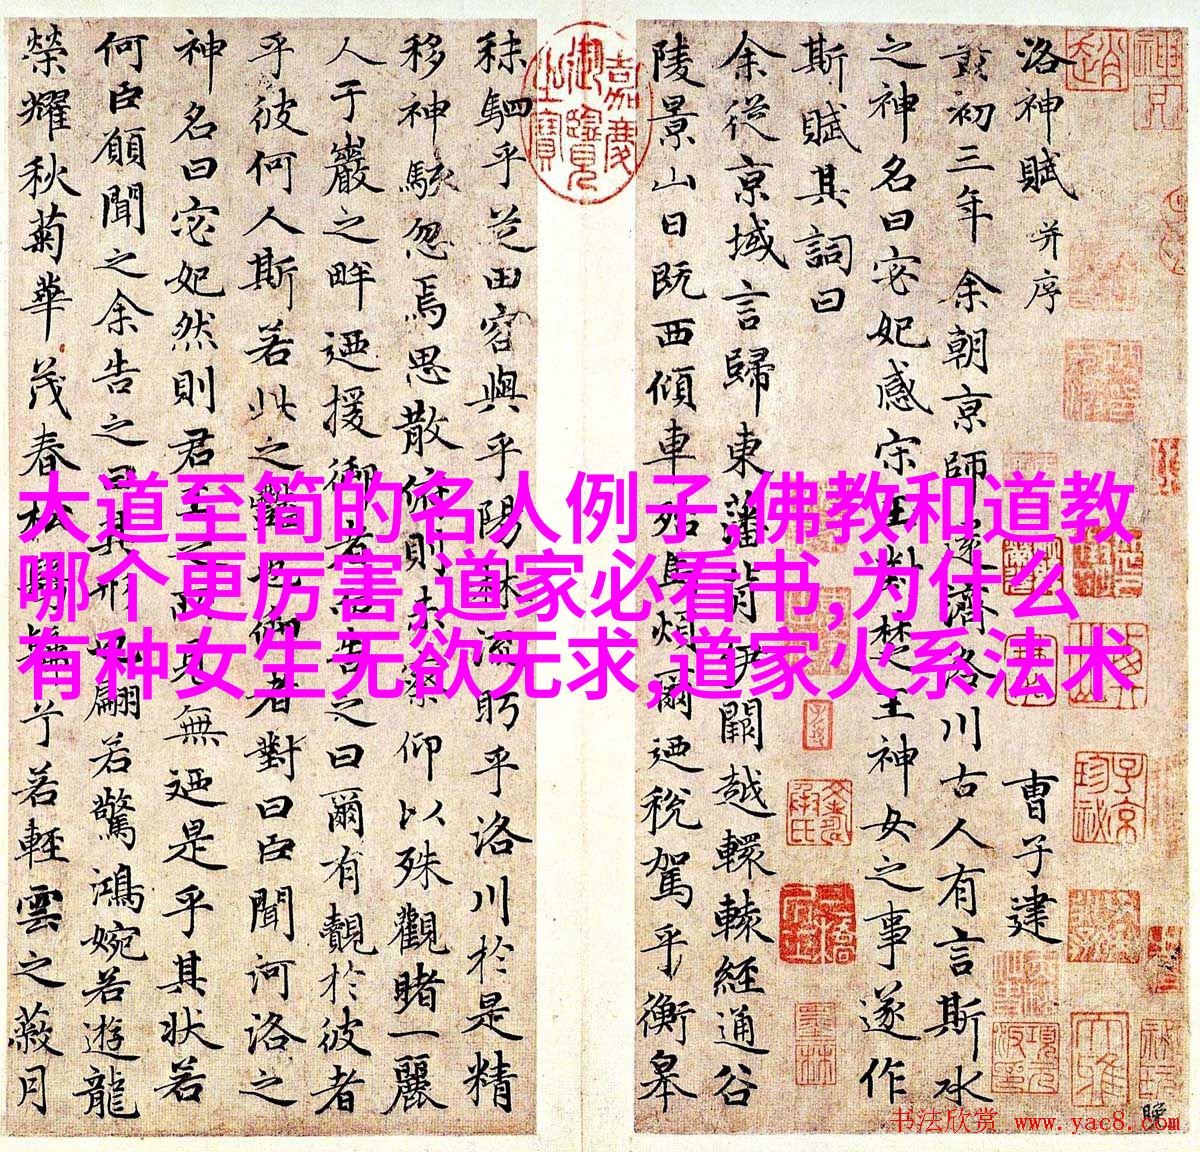 洛神賦 并序
曹子建
黄初三年余朝京師還濟洛川古人有言斯水
之神名曰宓妃感宋玉對楚王神女之事遂作
斯賦其詞曰
余從京域言歸東藩背伊闕越轘轅經通谷
陵景山日既西傾車殆馬煩爾迺稅駕乎衡皋
秣駟乎芝田容與乎陽林流眄乎洛川於是精
移神駭忽焉思散俯則未察仰以殊觀睹一麗
人于巖之畔迺援御者而告之曰爾有覿於彼者
乎彼何人斯若此之豔也御者對曰臣聞河洛之
神名曰宓妃然則君王之所見無迺是乎其狀若
何臣願聞之余告之曰其形也翩若驚鴻婉若遊龍
榮耀秋菊華茂春松髣髴兮若輕雲之蔽月
嘉慶御覽之寶
大道至简的名人例子,佛教和道教
哪个更厉害,道家必看书,为什么
有种女生无欲无求,道家火系法术
书法欣赏 www.yac8.com